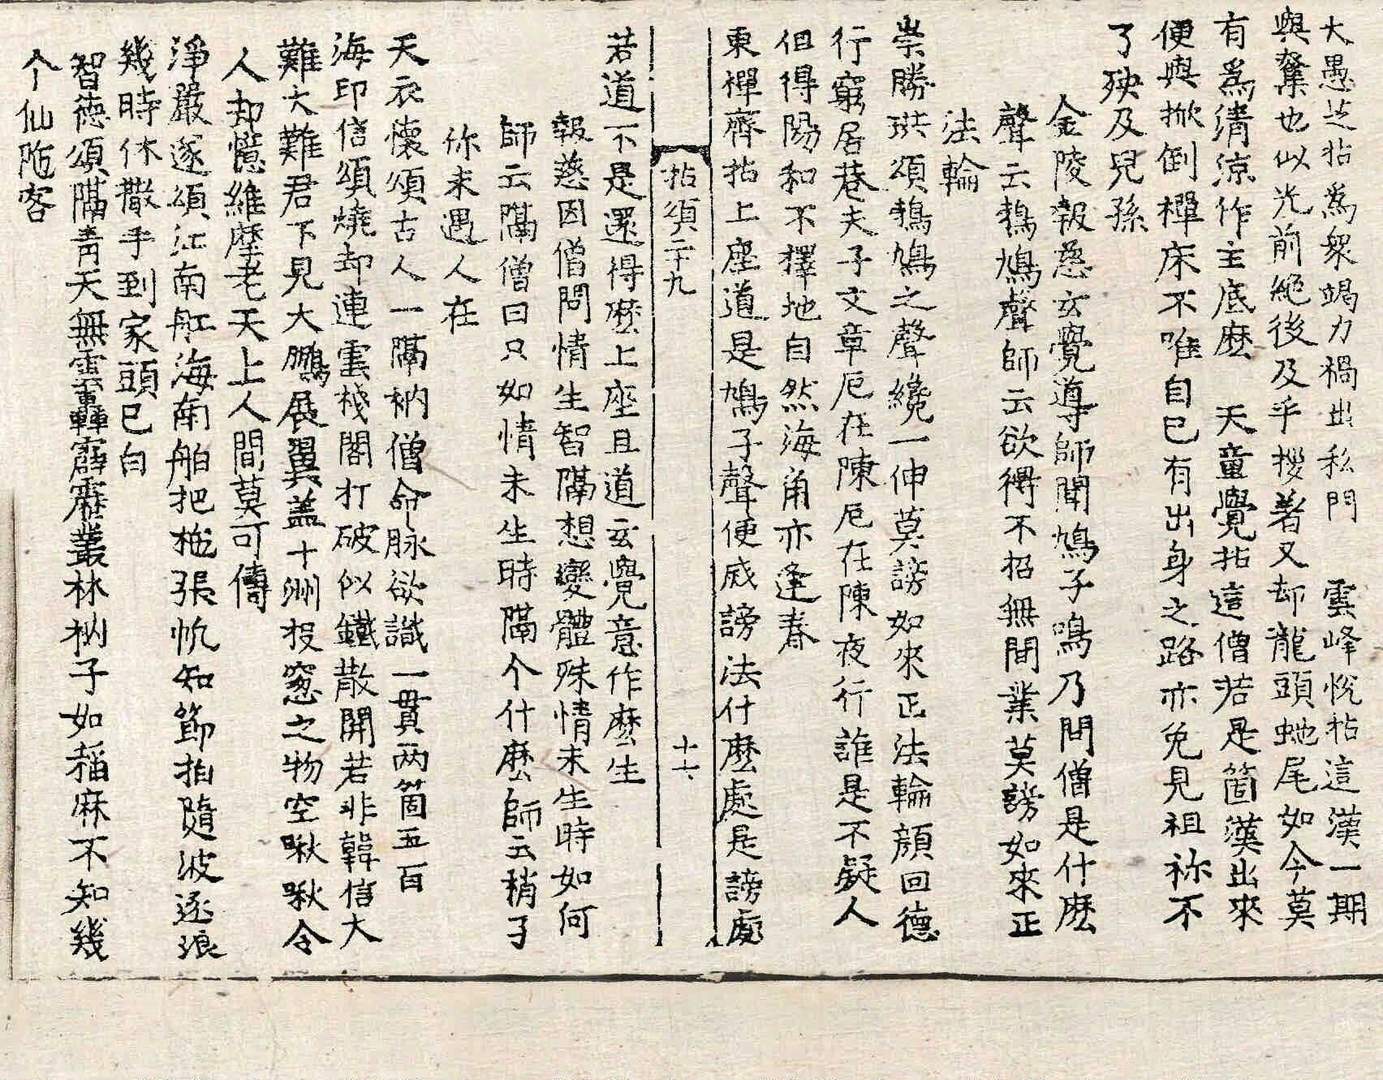 大愚芝拈爲衆竭力禍出私門　雲峰悅拈這漢一期
與奪也似光前絕後及乎拶著又却龍頭虵尾如今莫
有爲清凉作主底麽　天童覺拈這僧若是箇漢出來
便與掀倒禪床不唯自己有出身之路亦免見祖祢不
了殃及兒孫
金陵報慈玄覺導師聞鳩子鳴乃問僧是什麽
聲云鵓鳩聲師云欲得不招無間業莫謗如來正
法輪
崇勝珙頌鵓鳩之聲纔一伸莫謗如來正法輪顔回德
行窮居巷夫子文章厄在陳厄在陳夜行誰是不疑人
但得陽和不擇地自然海角亦逢春
東禪齊拈上座道是鳩子聲便成謗法什麽處是謗處
拈頌二十九
十六
若道不是還得麽上座且道玄覺意作麽生
報慈因僧問情生智隔想變體殊情未生時如何
師云隔僧曰只如情未生時隔个什麽師云稍子
你未遇人在
天衣懷頌古人一隔衲僧命脉欲識一貫两箇五百
海印信頌燒却連雲棧閣打破似鐵散關若非韓信大
難大難君不見大鵬展翼盖十洲投窓之物空啾啾令
人却憶維摩老天上人間莫可儔
淨嚴遂頌江南舡海南舶把拖張帆知節拍隨波逐浪
幾時休撒手到家頭已白
智德頌隔靑天無雲轟霹靂叢林衲子如稻麻不知幾
个仙陁客